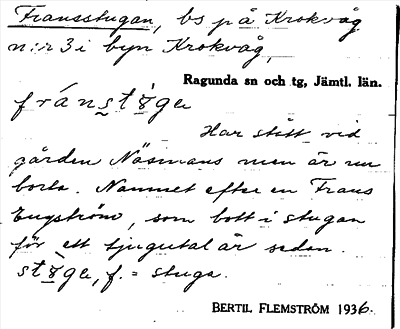 Fransstugan, bs på Krokvåg
n:r 3 i byn Krokvåg,
Ragunda sn och tg, Jämtl. län.
Har stått vid
gården Näsmans men är nu
borta. Namnet efter en Frans
Engström, som bott i stugan
för ett tjugutal år sedan.
f. = stuga.
BERTIL FLEMSTRÖM 1936.